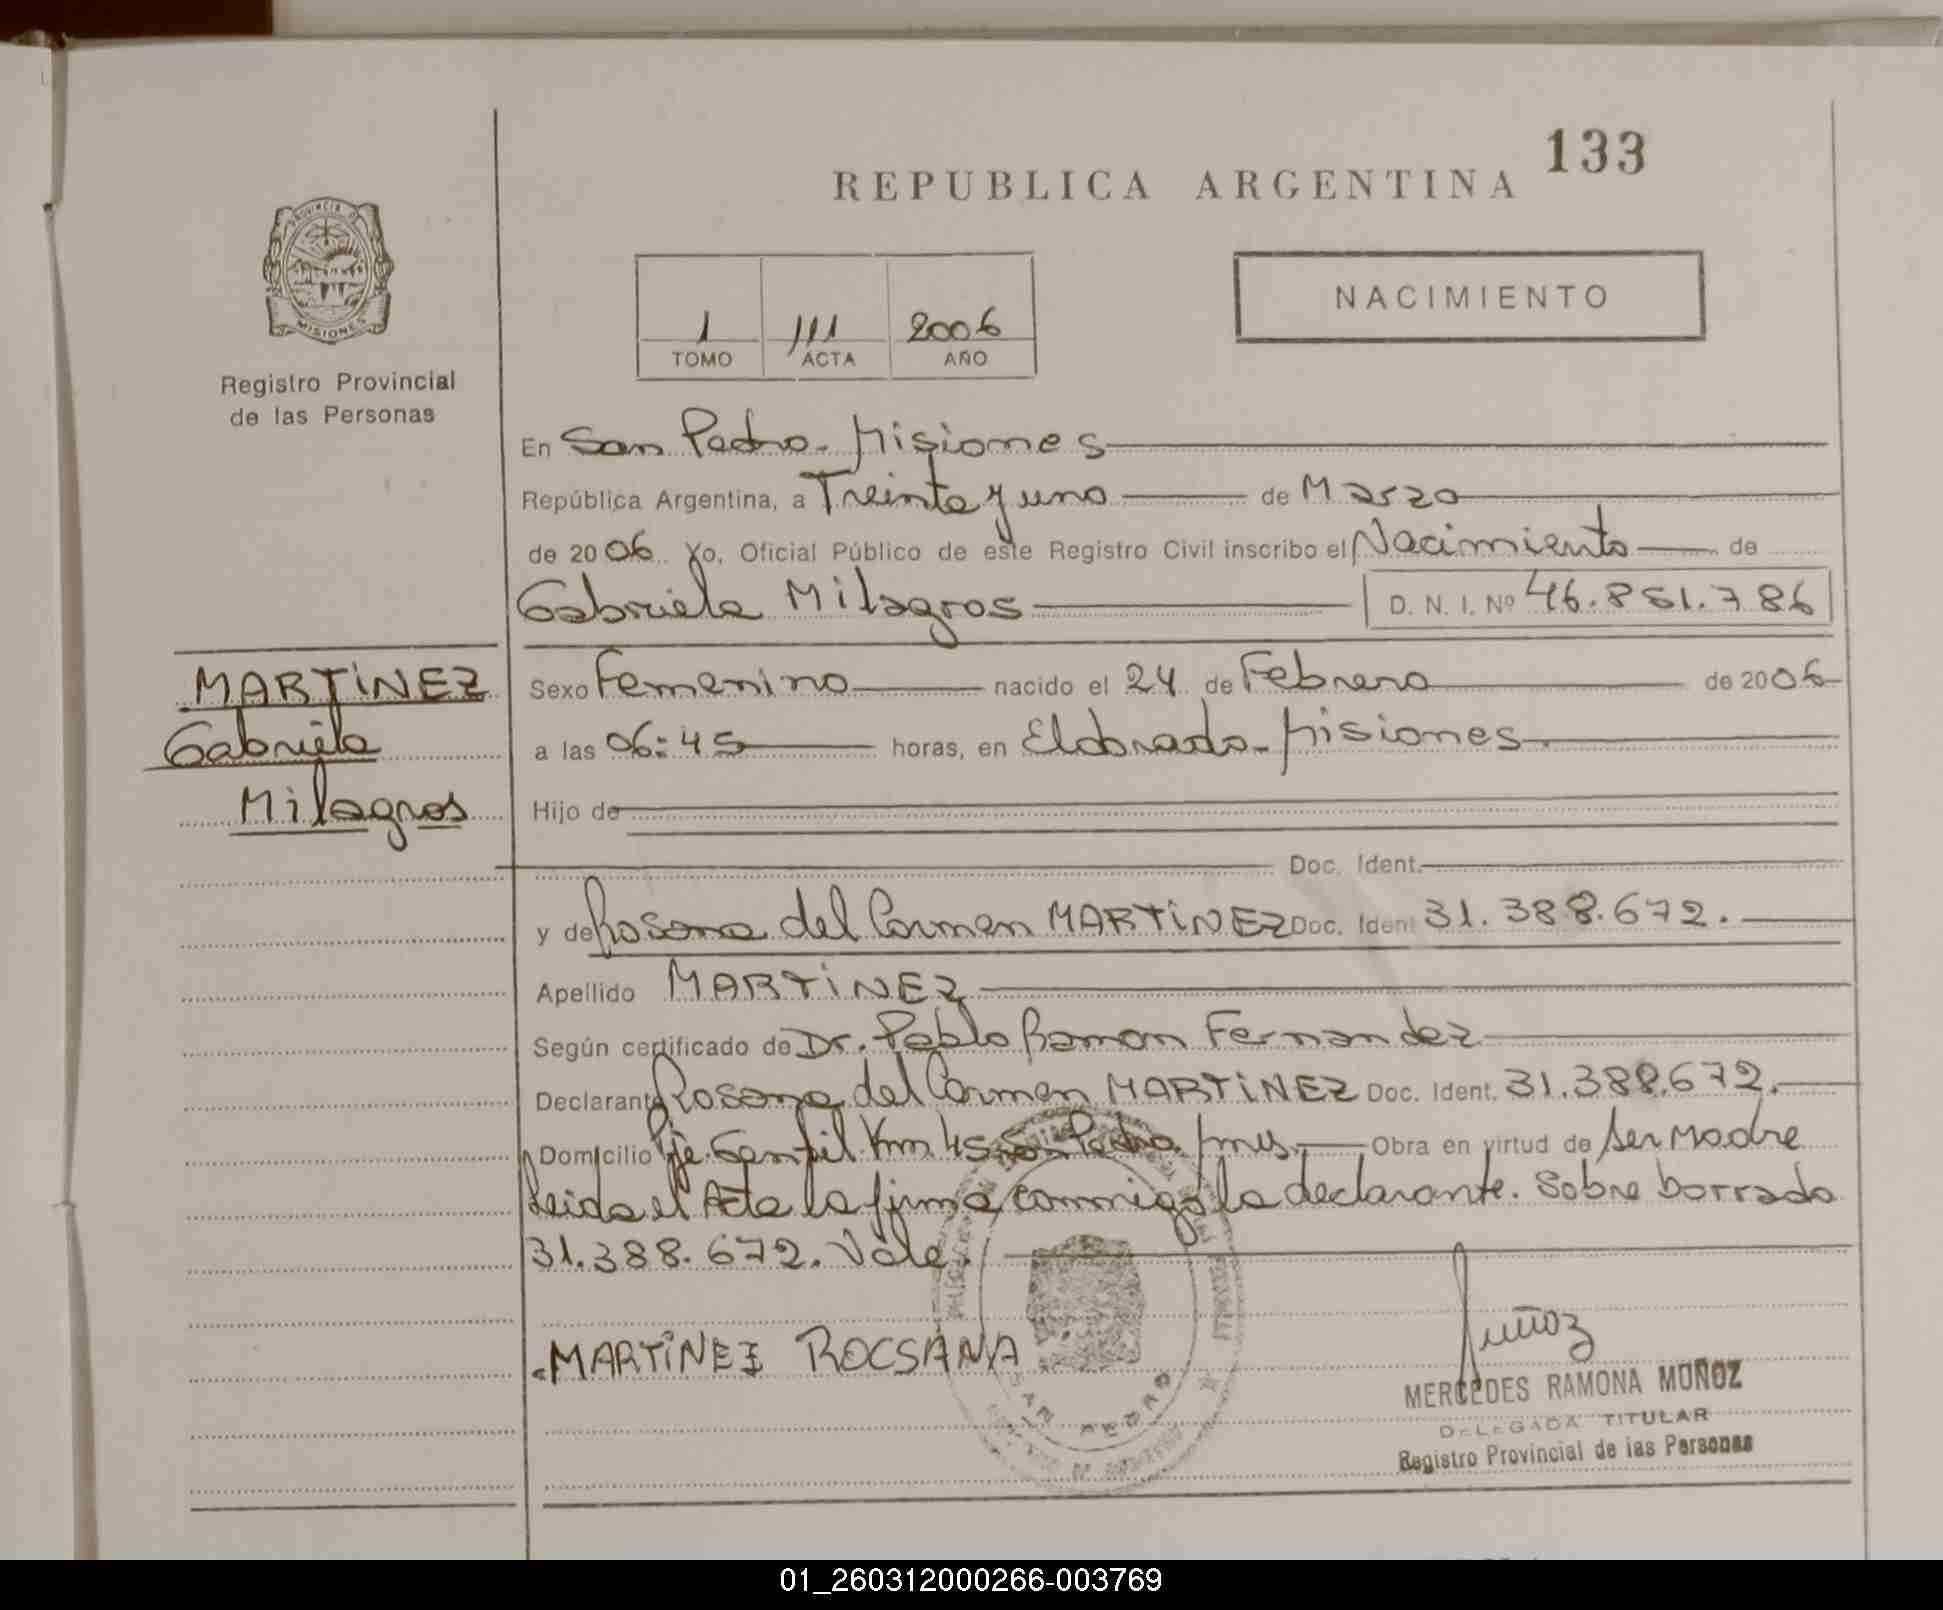 133
REPUBLICA ARGENTINA
PROVINCIA DE
MISIONES
Registro Provincial
de las Personas
NACIMIENTO
1 111 2006
TOMO ACTA AÑO
En San Pedro - Misiones
República Argentina, a Treinta y uno de Marzo
de 2006. Yo, Oficial Público de este Registro Civil inscribo el Nacimiento de
Gabriela Milagros D. N. I. Nº 46.851.786
MARTiNEZ
Gabriela
Milagros
Sexo Femenino nacido el 24 de Febrero de 2006
a las 06:45 horas, en Eldorado - Misiones
Hijo de
Doc. Ident.
y de Rosana del Carmen MARTiNEZ Doc. Ident 31.388.672.
Apellido MARTiNEZ
Según certificado de Dr. Pablo Ramon Fernandez
Declarante Rosana del Carmen MARTiNEZ Doc. Ident. 31.388.672.
Domicilio Pje. Gentil Km. 45 San Pedro Mnes. Obra en virtud de ser Madre
Leida el Acta la firma conmigo la declarante. Sobre borrado
31.388.672. Vale.
MARTiNEZ ROCSANA
SAN PEDRO
Muñoz
MERCEDES RAMONA MUÑOZ
DELEGADA TITULAR
Registro Provincial de las Personas
01_260312000266-003769